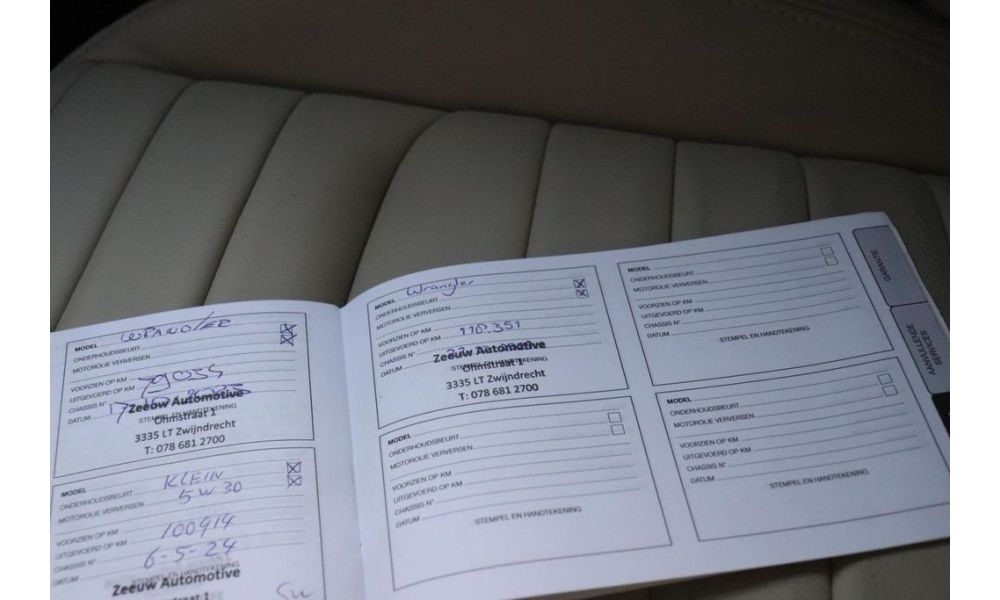 MODEL WRANGLER
ONDERHOUDSBEURT
MOTOROLIE VERVERSEN
VOORZIEN OP KM
UITGEVOERD OP KM 79035
CHASSIS N°
DATUM
STEMPEL EN HANDTEKENING
Zeeuw Automotive
Ohmstraat 1
3335 LT Zwijndrecht
T: 078 681 2700
MODEL KLEIN
ONDERHOUDSBEURT 5W30
MOTOROLIE VERVERSEN
VOORZIEN OP KM
UITGEVOERD OP KM 100914
CHASSIS N°
DATUM 6-5-24
STEMPEL EN HANDTEKENING
Zeeuw Automotive
MODEL Wrangler
ONDERHOUDSBEURT
MOTOROLIE VERVERSEN
VOORZIEN OP KM
UITGEVOERD OP KM 118.351
CHASSIS N°
DATUM
STEMPEL EN HANDTEKENING
Zeeuw Automotive
Ohmstraat 1
3335 LT Zwijndrecht
T: 078 681 2700
MODEL
ONDERHOUDSBEURT
MOTOROLIE VERVERSEN
VOORZIEN OP KM
UITGEVOERD OP KM
CHASSIS N°
DATUM
STEMPEL EN HANDTEKENING
MODEL
ONDERHOUDSBEURT
MOTOROLIE VERVERSEN
VOORZIEN OP KM
UITGEVOERD OP KM
CHASSIS N°
DATUM
STEMPEL EN HANDTEKENING
MODEL
ONDERHOUDSBEURT
MOTOROLIE VERVERSEN
VOORZIEN OP KM
UITGEVOERD OP KM
CHASSIS N°
DATUM
STEMPEL EN HANDTEKENING
GARANTIE
AANVULLENDE
SERVICES